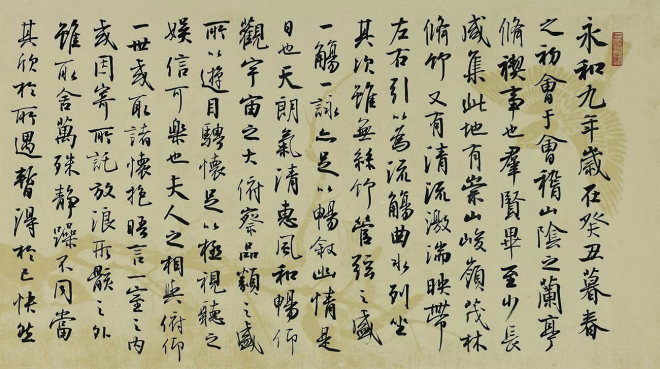 永和九年歲在癸丑暮春
之初會于會稽山陰之蘭亭
脩禊事也羣賢畢至少長
咸集此地有崇山峻嶺茂林
脩竹又有清流激湍映帶
左右引以為流觴曲水列坐
其次雖無絲竹管弦之盛
一觴一詠亦足以暢敘幽情是
日也天朗氣清惠風和暢仰
觀宇宙之大俯察品類之盛
所以遊目騁懷足以極視聽之
娛信可樂也夫人之相與俯仰
一世或取諸懷抱晤言一室之內
或因寄所託放浪形骸之外
雖取舍萬殊靜躁不同當
其欣於所遇暫得於己快然